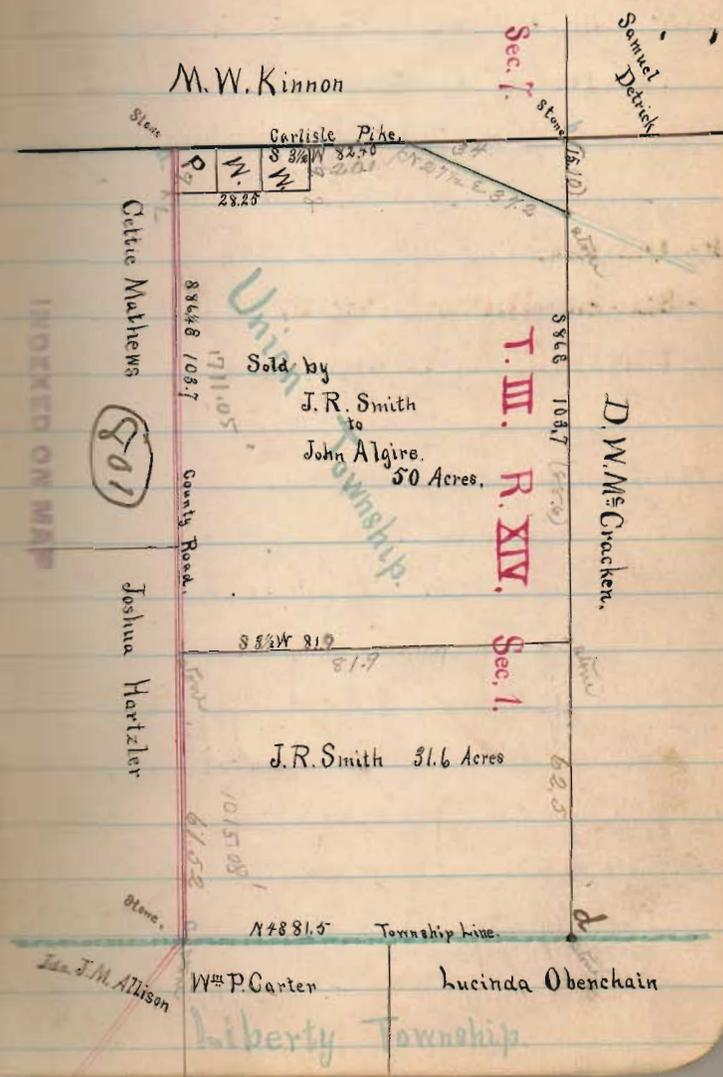 M. W. Kinnon
Sec. 7.
Samuel
Detrick
Stone
Stone
Carlisle Pike.
S 3½ W 82.40
P
W.
W
28.25
34
stone
Celtic Mathews
S86¾8 103.7
1711.05'
Union Township.
Sold by
J. R. Smith
to
John Algire.
50 Acres.
T. III. R. XIV. Sec. 1.
S86E 103.7
D. W. McCracken.
INDEXED ON MAP
801
County Road.
Joshua Hartzler
S 3½ W 81.9
81.9
stone
stone
J. R. Smith 31.6 Acres
62.5
61.52
1015.08'
Stone.
d
N4E 81.5 Township Line.
J. M. Allison
Wm P. Carter
Lucinda Obenchain
Liberty Township